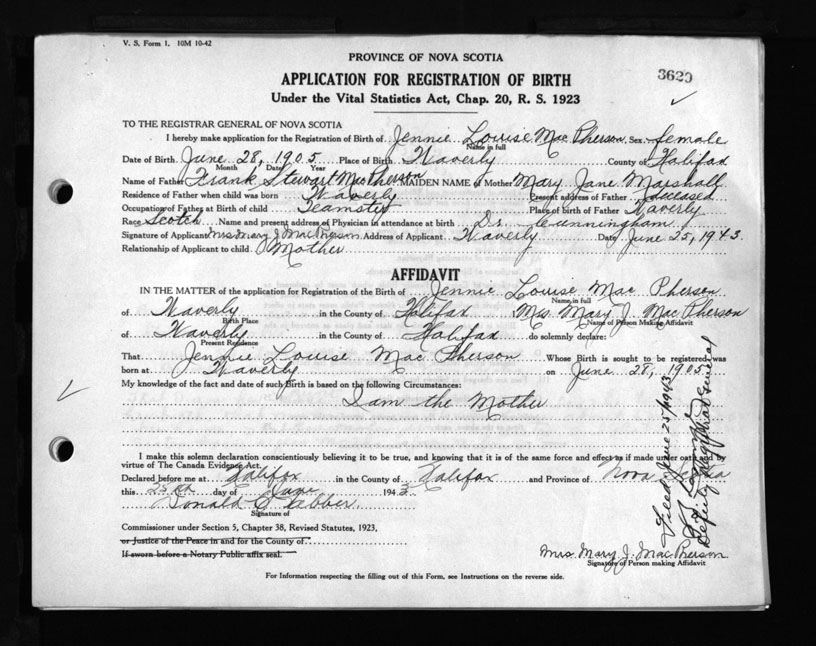 V. S. Form 1. 10M 10-42
PROVINCE OF NOVA SCOTIA
3620
APPLICATION FOR REGISTRATION OF BIRTH
Under the Vital Statistics Act, Chap. 20, R. S. 1923
TO THE REGISTRAR GENERAL OF NOVA SCOTIA
I hereby make application for the Registration of Birth of Jennie Louise MacPherson Sex female
Name in full
Date of Birth June 28, 1905 Place of Birth Waverly County of Halifax
Month Date Year
Name of Father Frank Stewart MacPherson MAIDEN NAME of Mother Mary Jane Marshall
Residence of Father when child was born Waverly Present address of Father deceased
Occupation of Father at Birth of child Teamster Place of birth of Father Waverly
Race Scotch Name and present address of Physician in attendance at birth Dr. Cunningham
Signature of Applicant Mrs Mary J. MacPherson Address of Applicant Waverly Date June 25, 1943.
Relationship of Applicant to child Mother
AFFIDAVIT
IN THE MATTER of the application for Registration of the Birth of Jennie Louise MacPherson
Name in full
of Waverly in the County of Halifax Mrs Mary J. MacPherson
Birth Place Name of Person Making Affidavit
of Waverly in the County of Halifax do solemnly declare:
Present Residence
That Jennie Louise MacPherson Whose Birth is sought to be registered was
born at Waverly on June 28, 1905
My knowledge of the fact and date of such Birth is based on the following Circumstances:
I am the Mother
I make this solemn declaration conscientiously believing it to be true, and knowing that it is of the same force and effect as if made under oath and by
virtue of The Canada Evidence Act.
Declared before me at Halifax in the County of Halifax and Province of Nova Scotia
this 25th day of June 1943
Donald
Signature of
Commissioner under Section 5, Chapter 38, Revised Statutes, 1923,
or Justice of the Peace in and for the County of
If sworn before a Notary Public affix seal.
Filed June 25/1943
Deputy Registrar General
Mrs. Mary J. MacPherson
Signature of Person making Affidavit
For Information respecting the filling out of this Form, see Instructions on the reverse side.